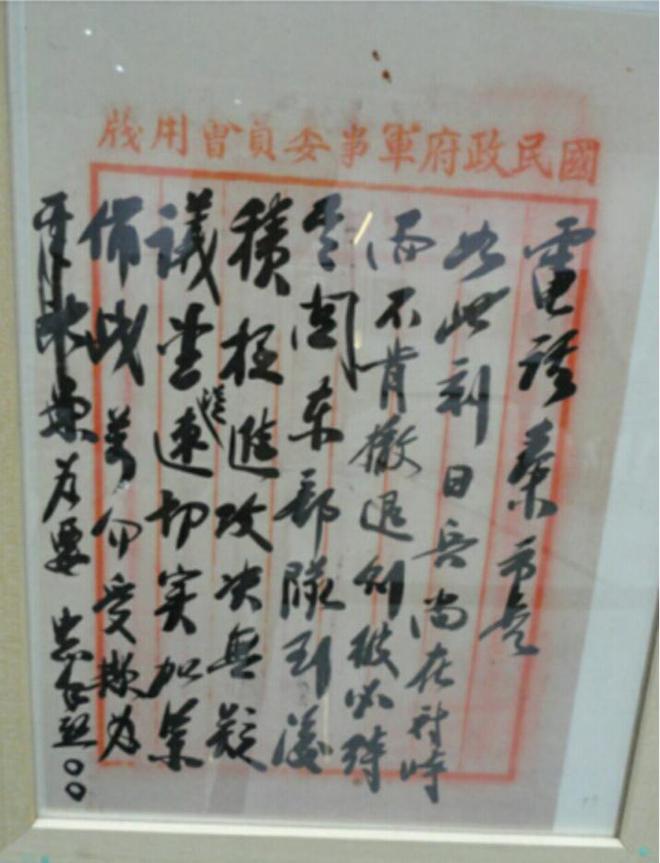 國民政府軍事委員會用牋
電話秦市長
如此刻日兵尚在對峙
而不肯撤退則彼必待
其關東部隊到後
積極進攻決無疑
議望從速切實加緊
備戰萬勿受欺為
為要